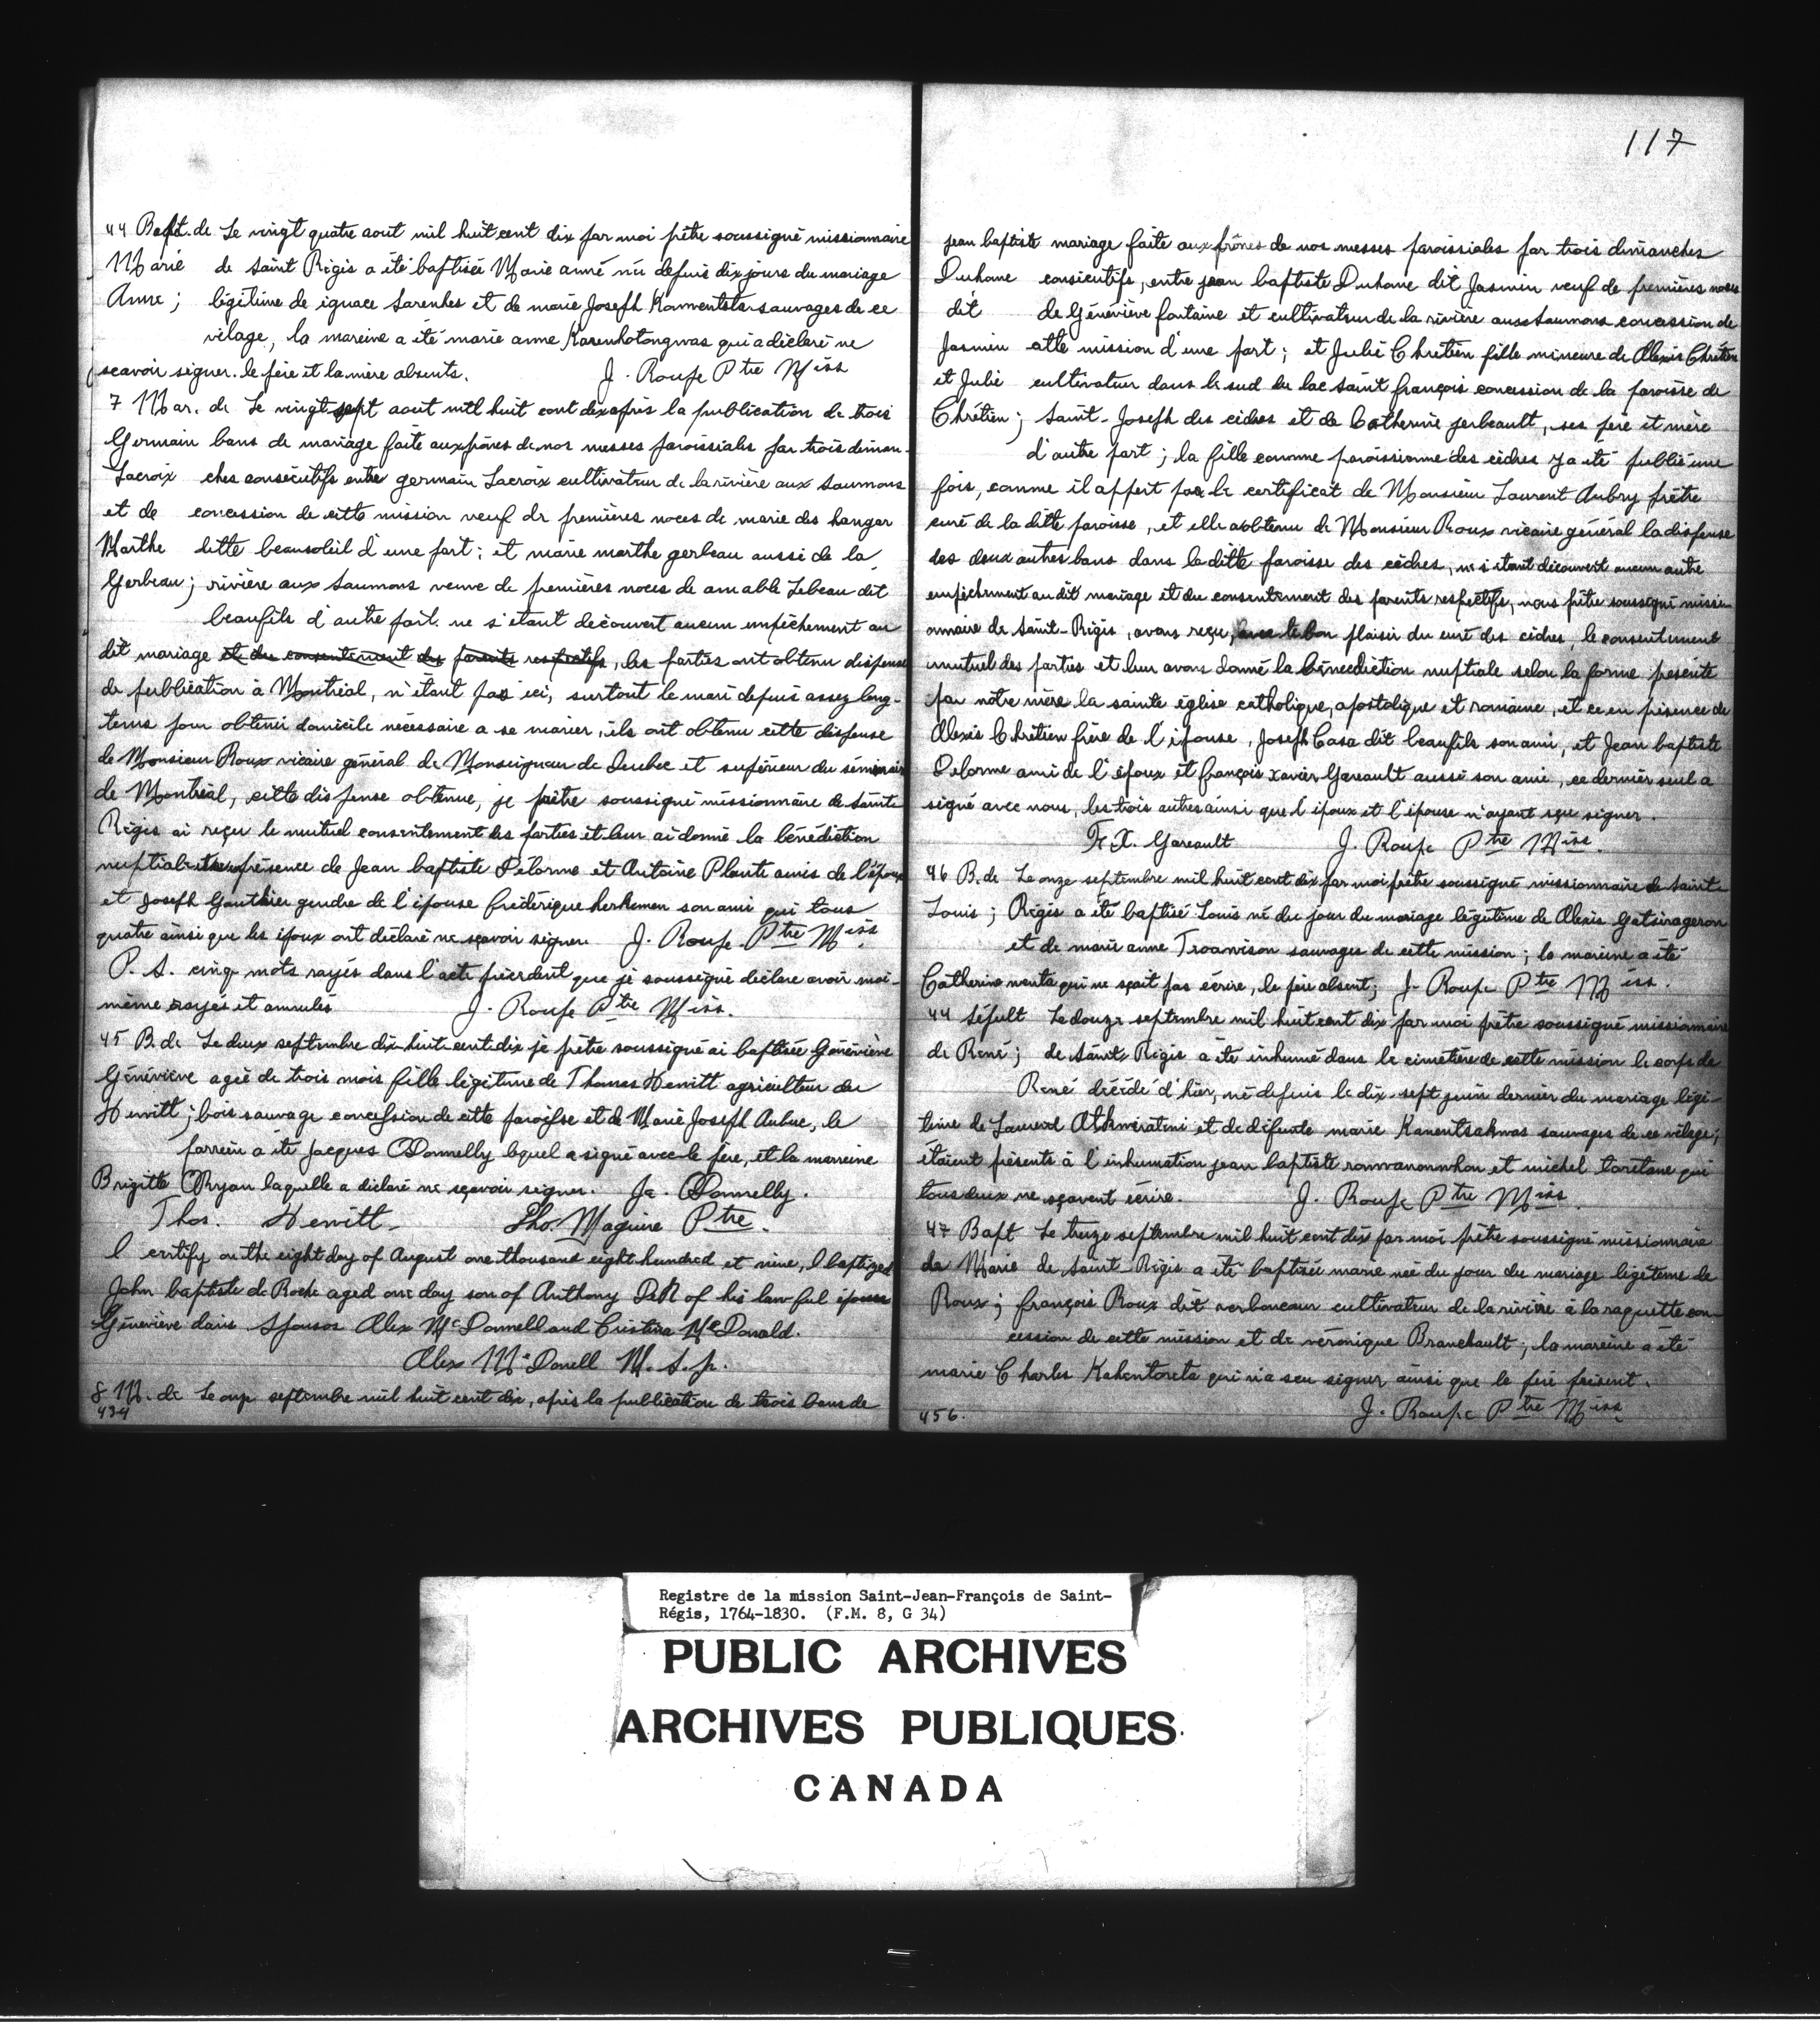 44 Bapt. de Le vingt quatre aout mil huit cent dix par moi prêtre soussigné missionnaire
Marie de saint Régis a été baptisée Marie anne née depuis dix jours du mariage
Anne ; légitime de ignace Sarenhes et de marie Joseph sauvages de ce
vilage, la mareine a été marie anne Karenhotongwas qui a déclaré ne
scavoir signer. le père et la mère absents. J. Roupe Ptre Miss
7 Mar. de Le vingt sept aout mil huit cent dix après la publication de trois
Germain bans de mariage faite aux prônes de nos messes paroissiales par trois diman-
Lacroix ches consécutifs entre germain Lacroix cultivateur de la rivière aux Saumons
et de concession de cette mission veuf de premières noces de marie des hangar
Marthe ditte beausoleil d'une part ; et marie marthe gerbeau aussi de la
Gerbeau ; rivière aux Saumons veuve de premières noces de amable Lebeau dit
beaufils d'autre part. ne s'étant découvert aucun empêchement au
dit mariage et du consentement des parents respectifs, les parties ont obtenu dispense
de publication à Montréal, n'étant pas ici, surtout le mari depuis assez long-
tems pour obtenir domicile nécessaire a se marier, ils ont obtenu cette dispense
de Monsieur Roux vicaire général de Monseigneur de Quebec et supérieur du séminaire
de Montréal, cette dispense obtenue, je prêtre soussigné missionnaire de Sainte
Régis ai reçu le mutuel consentement des parties et leur ai donné la bénédiction
nuptiale en présence de Jean baptiste Delorme et Antoine Plante amis de l'époux
et Joseph Gauthier gendre de l'épouse frédérique herkemen son ami qui tous
quatre ainsi que les époux ont déclaré ne sçavoir signer. J. Roupe Ptre Miss
P. S. cinq mots rayés dans l'acte précédent que je soussigné déclare avoir moi-
même rayés et annulés J. Roupe Ptre Miss.
45 B. de Le deux septembre dix-huit-cent-dix je prêtre soussigné ai baptisée Généviève
Généviève agée de trois mois fille légitime de Thomas Hewitt agriculteur du
Hewitt ; bois sauvage concession de cette paroisse et de Marie Joseph Aubuc, le
parrein a été Jacques O'Donnelly lequel a signé avec le père, et la marreine
Brigitte O'Ryan laquelle a déclaré ne sçavoir signer. Ja. O'Donnelly.
Thos. Hewitt Tho. Maguire Ptre.
I certify on the eight day of August one thousand eight hundred et nine, I baptized
John baptiste de Roche aged one day son of Anthony DeR of his lawful épouse
Généviève dains Sponsos Alex McDonnell and Cristina McDonald.
Alex McDonell M. A. p.
8 M. de Le onze septembre mil huit cent dix, après la publication de trois bans de
434
117
jean baptiste mariage faite aux prônes de nos messes paroissiales par trois dimanches
Duhame consécutifs, entre jean baptiste Duhame dit Jasmin veuf de premières noces
dit de Géneviève fontaine et cultivateur de la rivière aux Saumons concession de
Jasmin cette mission d'une part ; et Julie Chrétien fille mineure de Alexis Chrétien
et Julie cultivateur dans le sud du lac saint françois concession de la paroisse de
Chrétien ; Saint-Joseph des cèdres et de Catherine jerbeault, ses père et mère
d'autre part ; la fille comme paroissienne des cèdres y a été publié une
fois, comme il appert par le certificat de Monsieur Laurent Aubry prêtre
curé de la ditte paroisse, et elle a obtenu de Monsieur Roux vicaire général la dispense
des deux autres bans dans la ditte paroisse des cèdres, ne s'étant découvert aucun autre
empêchement au dit mariage et du consentement des parents respectifs, nous prêtre soussigné missi-
onnaire de Saint-Régis, avons reçu, avec le bon plaisir du curé des cèdres, le consentement
mutuel des parties et leur avons donné la bénédiction nuptiale selon la forme préscrite
par notre mère la sainte église catholique, apostolique et romaine, et ce en présence de
Alexis Chrétien frère de l'épouse, Joseph Casa dit beaufils son ami, et Jean baptiste
Delorme ami de l'époux et françois xavier Gareault aussi son ami, ce dernier seul a
signé avec nous, les trois autres ainsi que l'époux et l'épouse n'ayant sçu signer.
F. X. Gareault J. Roupe Ptre Miss.
46 B. de Le onze septembre mil huit cent dix par moi prêtre soussigné missionnaire de Saint-
Louis ; Régis a été baptisé Louis né du jour du mariage légitime de Alexis Gatsirageron
et de marie anne Troanrison sauvages de cette mission ; la mareine a été
Catherine qui ne sçait pas écrire, le père absent ; J. Roupe Ptre Miss.
44 Sépult Le douze septembre mil huit cent dix par moi prêtre soussigné missionnaire
de René ; de Saint Régis a été inhumé dans le cimetière de cette mission le corps de
René décédé d'hier, né depuis le dix-sept juin dernier du mariage légi-
time de Laurent Atkwiratini et de défunte marie Kanentsakwas sauvages de ce vilage ;
étaient présents à l'inhumation jean baptiste et michel tarétane qui
tous deux ne sçavent écrire. J. Roupe Ptre Miss.
47 Bapt Le treize septembre mil huit cent dix par moi prêtre soussigné missionnaire
de Marie de Saint-Régis a été baptisée marie née du jour du mariage légitime de
Roux ; françois Roux dit verboncœur cultivateur de la rivière à la raquette con-
cession de cette mission et de véronique Branchault ; la mareine a été
marie Charles Kahentoreta qui n'a seu signer ainsi que le père présent.
456. J. Roupe Ptre Miss
Registre de la mission Saint-Jean-François de Saint-
Régis, 1764-1830. (F.M. 8, G 34)
PUBLIC ARCHIVES
ARCHIVES PUBLIQUES
CANADA